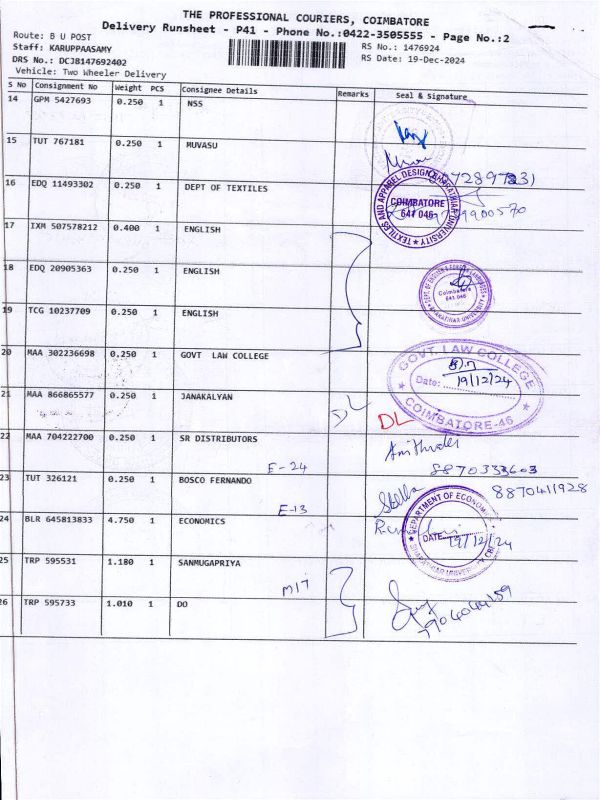 THE PROFESSIONAL COURIERS, COIMBATORE
Delivery Runsheet - P41 - Phone No.:0422-3505555 - Page No.:2
Route: B U POST
RS No.: 1476924
Staff: KARUPPAASAMY
RS Date: 19-Dec-2024
DRS No.: DCJB147692402
Vehicle: Two Wheeler Delivery
S No Consignment No Weight PCS Consignee Details Remarks Seal & Signature
14 GPM 5427693 0.250 1 NSS
15 TUT 767181 0.250 1 MUVASU
16 EDQ 11493302 0.250 1 DEPT OF TEXTILES
TEXTILES AND APPAREL DESIGN BHARATHIAR UNIVERSITY
COIMBATORE
641 046
17 IXM 507578212 0.400 1 ENGLISH
18 EDQ 20905363 0.250 1 ENGLISH
Coimbatore
641 046
BHARATHIAR UNIVERSITY
19 TCG 10237709 0.250 1 ENGLISH
20 MAA 302236698 0.250 1 GOVT LAW COLLEGE
GOVT. LAW COLLEGE
Date: 19/12/24
COIMBATORE-46
21 MAA 866865577 0.250 1 JANAKALYAN DL DL
22 MAA 704222700 0.250 1 SR DISTRIBUTORS
E-24
8870333603
23 TUT 326121 0.250 1 BOSCO FERNANDO Stella 8870411928
E-13
24 BLR 645813833 4.750 1 ECONOMICS
DEPARTMENT OF ECONOMICS
DATE 19/12/24
BHARATHIAR UNIVERSITY
25 TRP 595531 1.180 1 SANMUGAPRIYA
M17
26 TRP 595733 1.010 1 DO